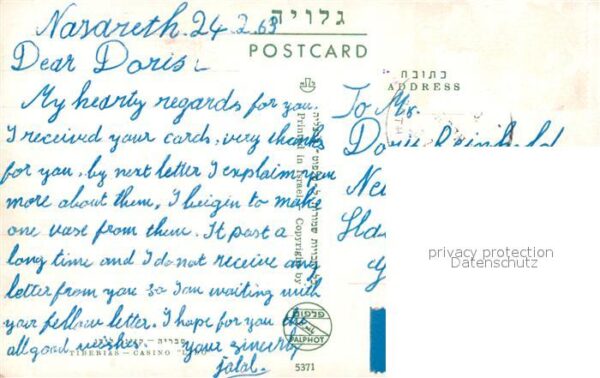 Nasareth. 24.2.63
גלויה
POSTCARD
Dear Doris:
My hearty regards for you.
I received your cards, very thanks
for you, by next letter I explain you
more about them, I beigin to make
one vast from them. It past a
long time and I do not receive any
letter from you so I am waiting with
your fellow letter. I hope for you the
all good wishes. Your sincerly
Jalal.
TIBERIAS — CASINO
כתובת
ADDRESS
To Mr.
Doris
privacy protection
Datenschutz
Printed in Israel Copyright by
פלפוט
PALPHOT
5371